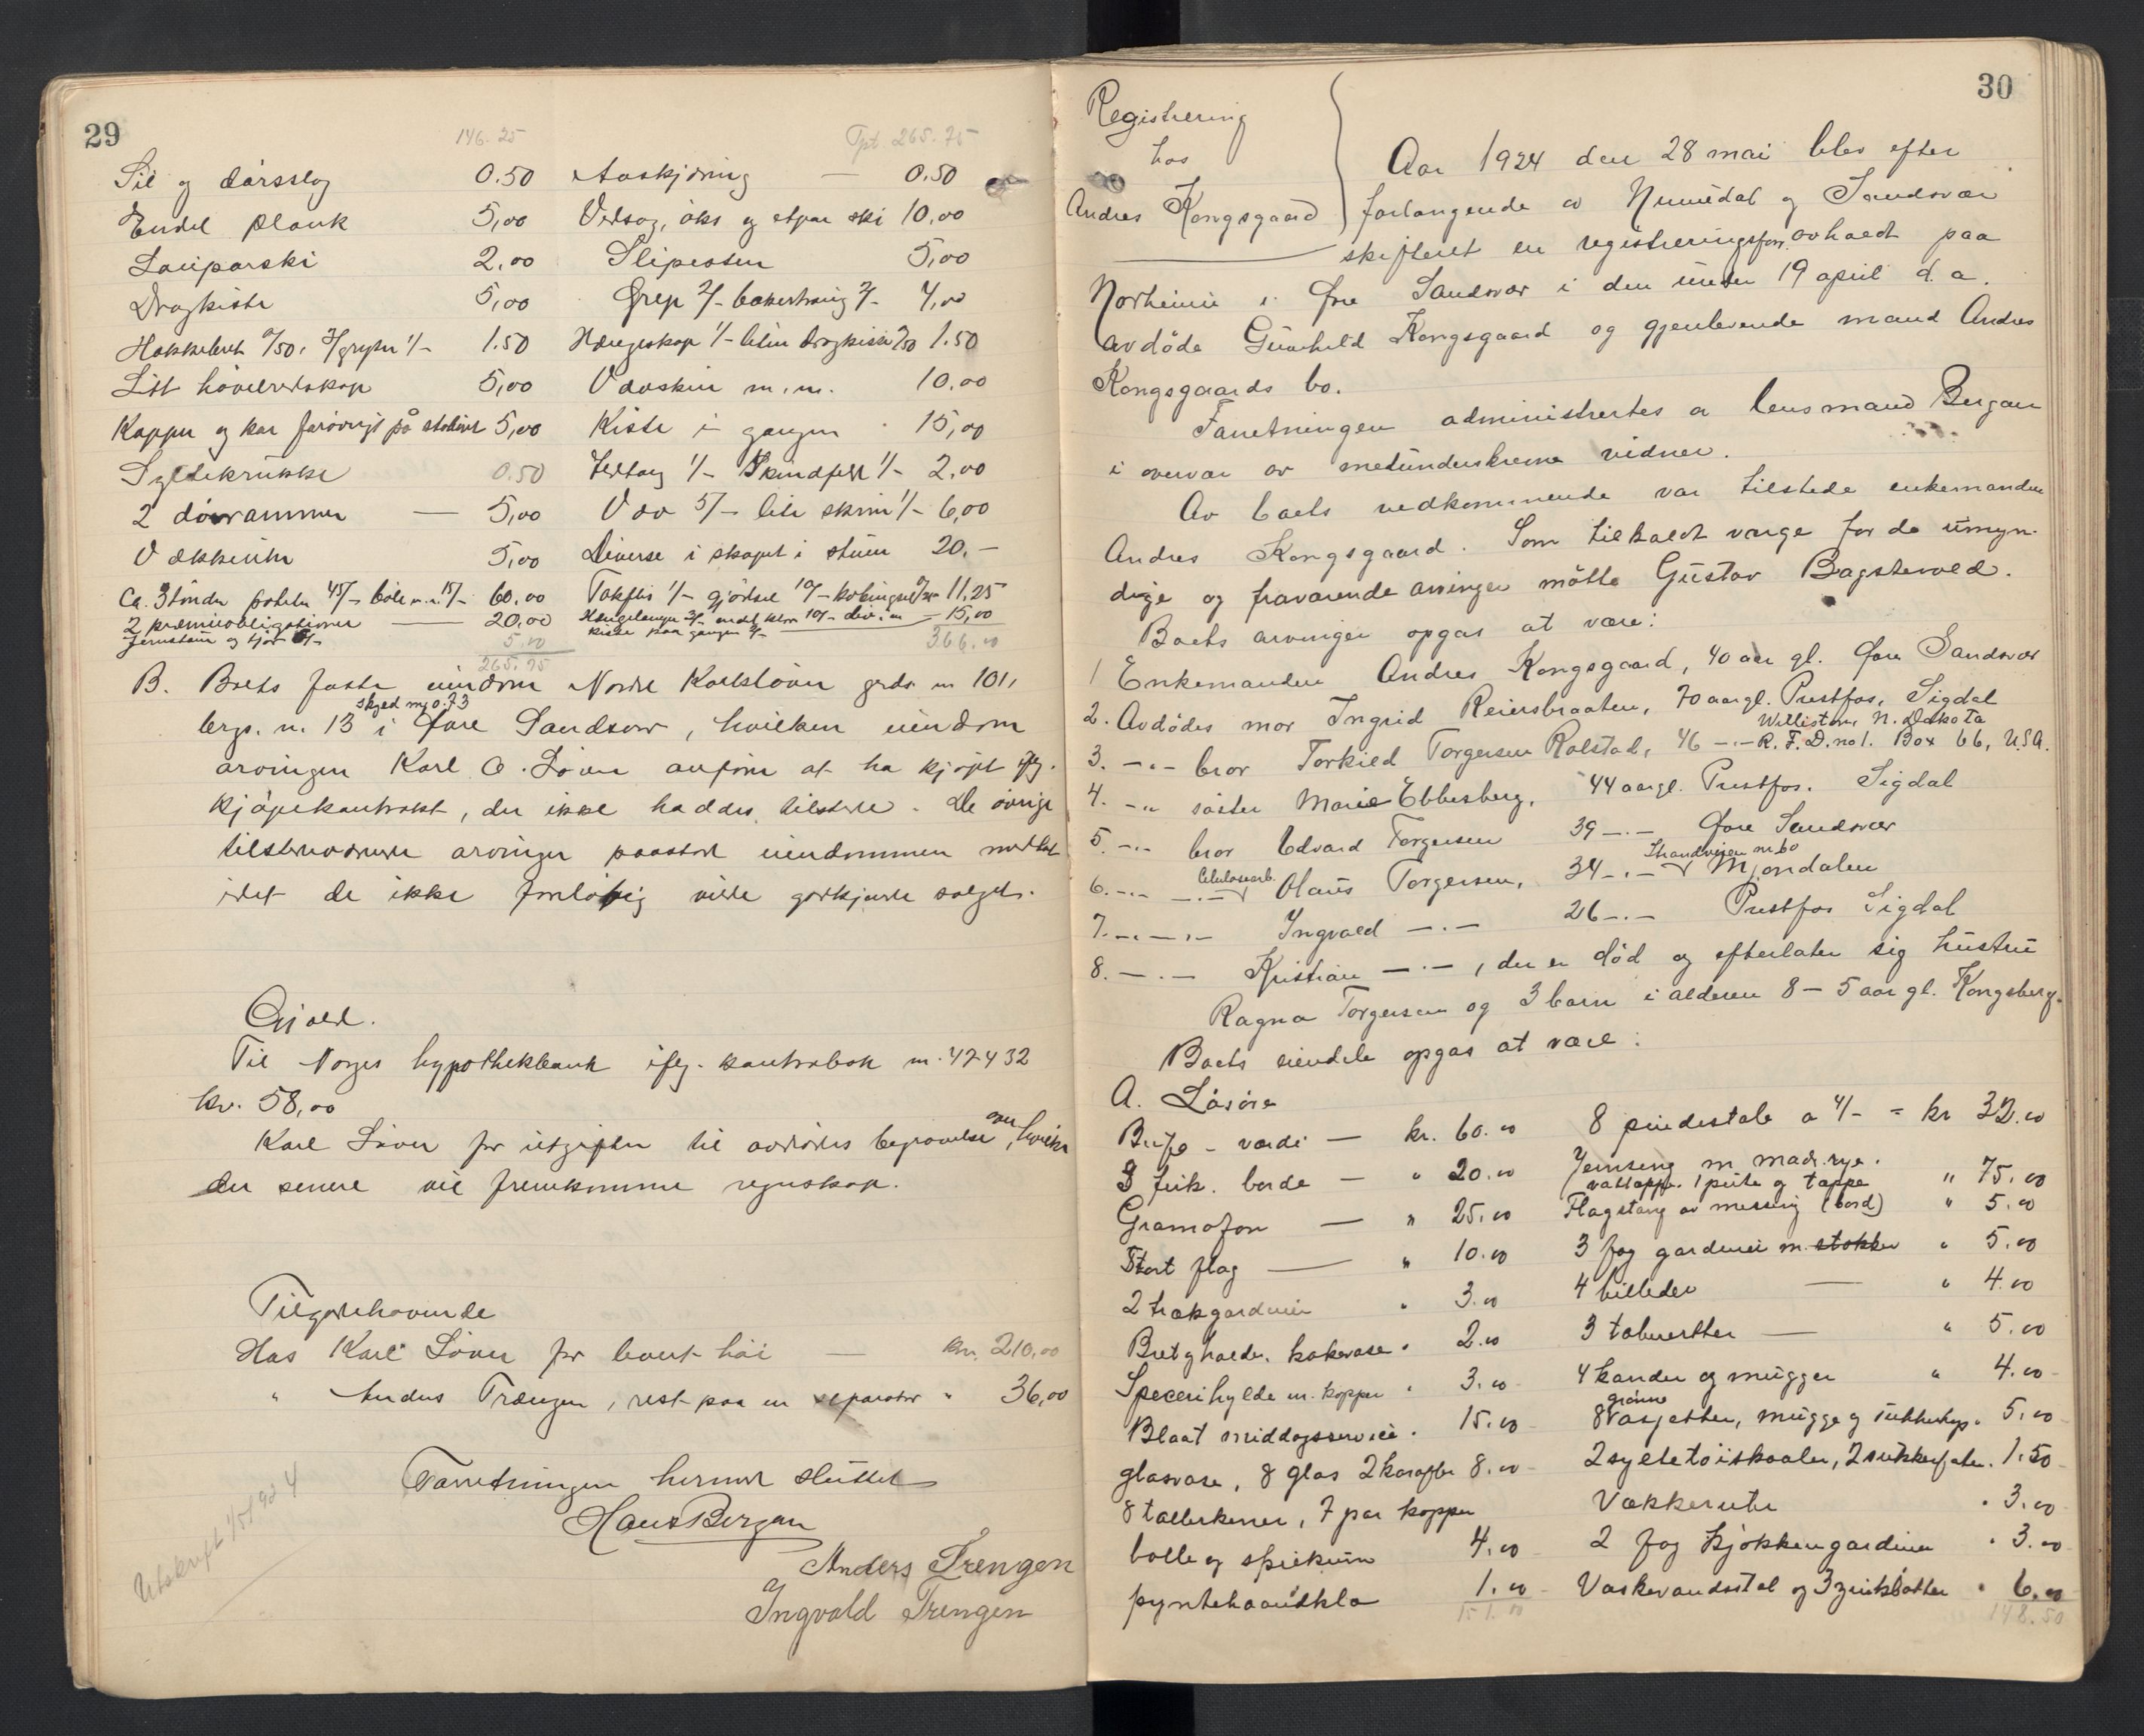 29
146.25
Sil og dørslag 0.50
Endel plank 5,00
Lauparski 2,00
Dragkiste 5,00
Hakkebret 0/50, 1/- 1.50
Litt høvelredskap 5,00
Kopper og kar forøvrigt på stabur 5,00
Syltekrukke 0.50
2 dørrammer — 5,00
Vækkeuhr 5,00
Ca. 3 tønder poteter 45/- 15/- 60.00
2 præmieobligationer — 20,00
Jernstaur og tjor 5/- 5.00
265.75
Tpt 265.75
Avskjöring — 0.50
Vedsag, øks og et par ski 10,00
Slipesten 5,00
Grep 2/- 2/- 4,00
Hængeskap 1/- liten dragkiste 0/50 1.50
Vævskun m.m. 10.00
Kiste i gangen 15,00
1/- Skindfell 1/- 2,00
Væv 5/- lite skrin 1/- 6,00
Diverse i skapet i stuen 20.—
1/- 10/- 11,25
10/- div. 15,00
kiste paa gangen 2/-
366.00
B. Boets faste eiendom Nordre Karlsløver gards n. 101,
skyld m. 0.73
brgs. n. 13 i Øvre Sandsvær, hvilken eiendom
arvingen Karl O. Løver anförer at ha kjøpt iflg.
kjøpekontrakt, der ikke haddes tilstede. De øvrige
tilstedeværende arvinger paastod eiendommen medtat
idet de ikke foreløbig vilde godkjende salget.
Gjæld.
Til Norges hypothekbank iflg. kontrabok nr. 42432
kr. 58,00
Karl Løver for utgifter til avdødes begravelse mm, hvorfor
der senere vil fremkomme regnskap.
Tilgodehavende
Hos Karl Løver for levert høi — kr. 210,00
" Anders Trængen, rest paa en separator " 36,00
Forretningen hermed sluttet
Hans Bergan
Anders Trengen
Ingvald Trengen
Utskrift 1/5 1924
30
Registrering
hos
Andres Kongsgaard
Aar 1924 den 28 mai blev efter
forlangende av Numedal og Sandsvær
skifteret en registreringsforr. avholdt paa
Norheim i Øvre Sandsvær i den under 19 april d.a.
avdøde Gunhild Kongsgaard og gjenlevende mand Andres
Kongsgaards bo.
Forretningen administrertes av lensmand Bergan
i overvær av medunderskrevne vidner.
Av boets vedkommende var tilstede enkemanden
Andres Kongsgaard. Som tilkaldt verge for de umyn-
dige og fraværende arvinger møtte Gustav Bagstevold.
Boets arvinger opgas at være:
1 Enkemanden Andres Kongsgaard, 40 aar gl. Øvre Sandsvær
2. Avdødes mor Ingrid Reiersbraaten, 70 aar gl. Prestfos, Sigdal
Williston, N. Dakota
3. -"- bror Torkild Torgersen Rolstad, 46 -"- R.F.D. no 1. Box 66, U.S.A.
4. -"- søster Marie Ebbesberg, 44 aar gl. Prestfos. Sigdal
5. -"- bror Edvard Torgersen 39 -"- Øvre Sandsvær
Celulosearb. Strandveien nr. 60
6. -"- -"- Olaus Torgersen, 34 -"- Mjøndalen
7. -"- -"- Ingvald -"- 26 -"- Prestfos Sigdal
8. -"- Kristian -"-, der er død og efterlater sig hustru
Ragna Torgersen og 3 barn i alderen 8 - 5 aar gl. Kongsberg.
Boets eiendele opgas at være:
A. Løsøre
Buffe - værdi — kr. 60.00
3 firk. borde — " 20.00
Gramofon — " 25.00
Stort flag — " 10.00
2 trækgardiner " 3.00
Kakevase " 2.00
Specerihylde m. kopper " 3.00
Blaat middagsservice " 15.00
glasvase, 8 glas 2 karafler 8.00
8 tallerkener, 7 par kopper
bolle og spiekum 4.00
pyntehaandklæ 1.00
151.00
8 pindestole a 4/- = kr 32.00
Jernseng m madr. rye.
vattæppe. 1 pute og tæppe " 75.00
Flagstang av messing (bord) " 5.00
3 fag gardiner m. stokker " 5.00
4 billeder — " 4.00
3 taburetter — " 5.00
4 kander og mugger " 4.00
grønne
8 asjetter, mugge og sukkerkop. 5.00
2 syltetøiskaaler, 2 sukkerfater. 1.50
Vækkerur " 3.00
2 fag kjøkkengardiner " 3.00
Vaskevandsstel og 3 zinkbøtter " 6.00
148.50